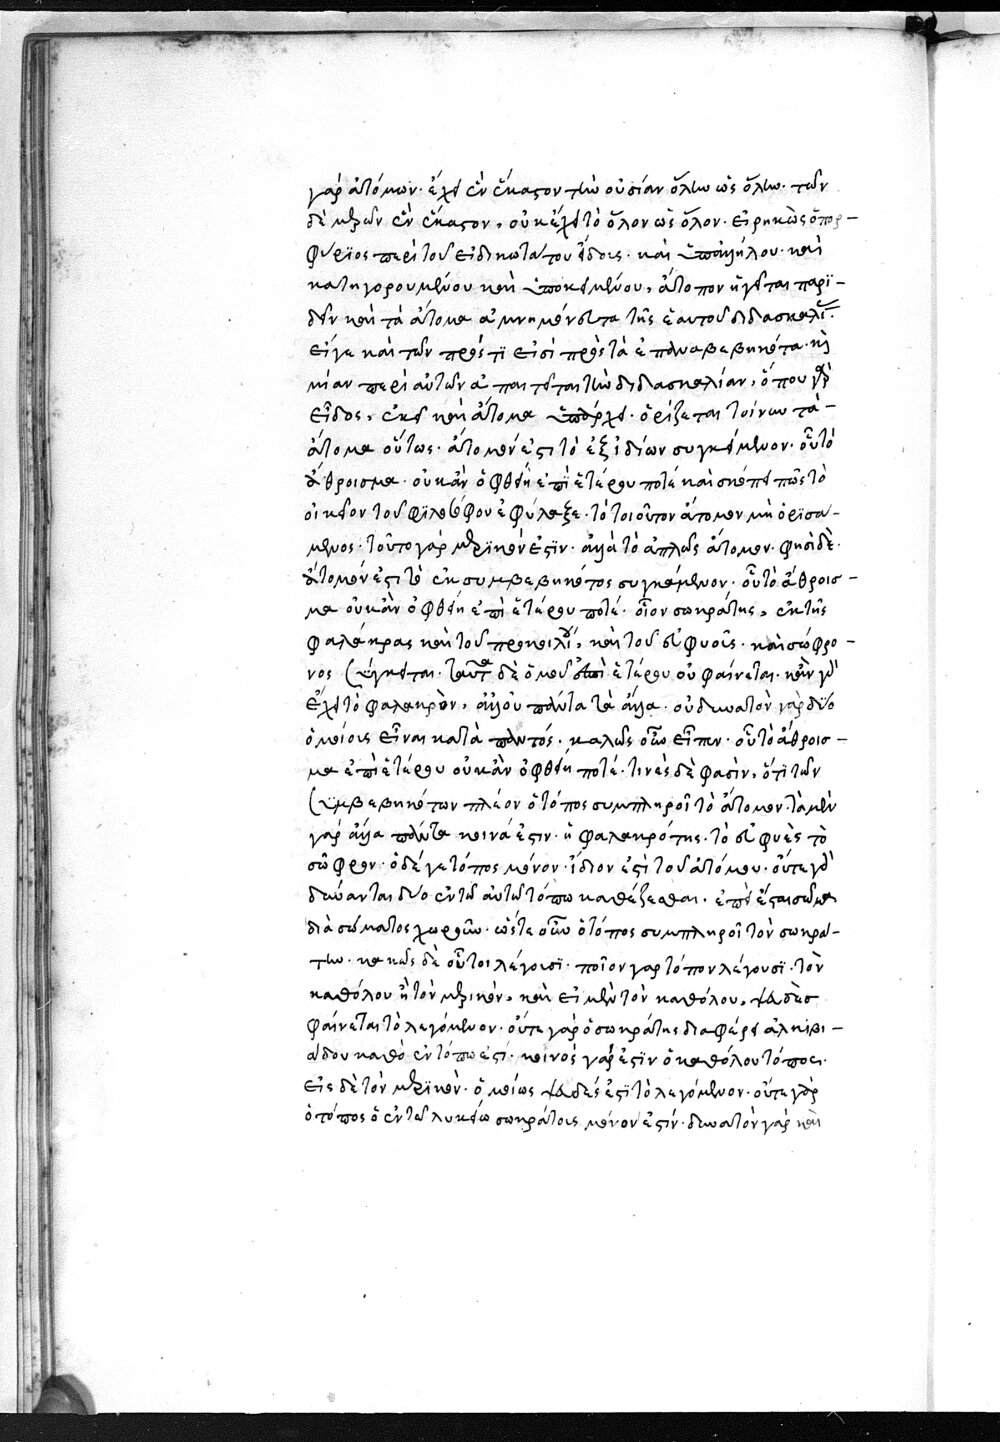 γὰρ ἀτόμων· ἔχει ἓν ἕκαστον τὴν οὐσίαν ὅλην ὡς ὅλην· τῶν
δὲ μερῶν ἓν ἕκαστον, οὐκ ἔχει τὸ ὅλον ὡς ὅλον· εἰρηκὼς ὁ πορ-
φύριος περὶ τοῦ εἰδικωτάτου εἴδους· καὶ ὑπαλλήλου· καὶ
κατηγορουμένου καὶ ὑποκειμένου, ἄτοπον ἡγεῖται παρϊ-
δεῖν καὶ τὰ ἄτομα ἀμνημόνευτα τῆς ἑαυτοῦ διδασκαλί
εἴγε καὶ τῶν πρός τι εἰσὶ πρὸς τὰ ἐπαναβεβηκότα· καὶ
μίαν περὶ αὐτῶν ἀπαιτεῖται τὴν διδασκαλίαν, ὅπου γὰρ
εἶδος, ἐκεῖ καὶ ἄτομα ὑπάρχει· ὁρίζεται τοίνυν τὰ-
ἄτομα οὕτως· ἄτομόν ἐστι τὸ ἐξ ἰδίων συγκείμενον· οὗ τὸ
ἄθροισμα· οὐκ ἂν ὀφθείη ἐπὶ ἑτέρου ποτέ καὶ σκόπει πῶς τὸ
οἰκεῖον τοῦ φιλοσόφου ἐφύλαξε· τὸ τοιοῦτον ἄτομον μὴ ὁρϊσά-
μενος· τοῦτο γὰρ μερϊκόν ἐστϊν· ἀλλὰ τὸ ἁπλῶς ἄτομον· φησὶ δὲ·
ἄτομόν ἐστι τὸ ἐκ συμβεβηκότος συγκείμενον· οὗ τὸ ἄθροισ-
μα οὐκ ἂν ὀφθείη ἐπὶ ἑτέρου ποτέ· οἷον σωκράτης, ἐκ τῆς
φαλάκρας καὶ τοῦ προκοιλί, καὶ τοῦ εὐφυοῦς· καὶ σώφρο-
νος σύγκειται· ταῦτα δὲ ὁμοῦ ἐπὶ ἑτέρου οὐ φαίνεται· κἂν γὰρ
ἔχει τὸ φαλακρὸν, ἀλλ' οὐ πάντα τὰ ἄλλα· οὐ δυνατὸν γὰρ δύο
ὁμοίους εἶναι κατὰ παντός· καλῶς οὖν εἶπεν· οὗ τὸ ἄθροισ-
μα ἐπὶ ἑτέρου οὐκ ἂν ὀφθείη ποτέ· τινὲς δὲ φασὶν, ὅτϊ τῶν
συμβεβηκότων πλέον ὁ τόπος συμπληροῖ τὸ ἄτομον· τὰ μὲν
γὰρ ἄλλα πάντα κοινά ἐστιν· ἡ φαλακρότης· τὸ εὐφυὲς τὸ
σῶφρον· ὁ δέ γε τόπος μόνον· ἴδιον ἐστὶ τοῦ ἀτόμου· οὔτε γὰρ
δύνανται δύο ἐν τῶ αὐτῶ τόπω καθέζεσθαι· ἐπεὶ ἔσται σῶμα
διὰ σώματος χωροῦν· ὥστε οὖν ὁ τόπος συμπληροῖ τὸν σωκρά-
την· κακῶς δὲ οὗτοι λέγουσϊ· ποῖον γὰρ τόπον λέγουσϊ· τὸν
καθόλου ἢ τὸν μερικόν, καὶ εἰ μὲν τὸν καθόλου, ψευδὲς
φαίνεται τὸ λεγόμενον· οὔτε γὰρ ὁ σωκράτης διαφέρει ἀλκιβι-
άδου καθὸ ἐν τόπω ἐστί· κοινός γάρ ἐστϊν ὁ καθόλου τόπος·
εἰς δὲ τὸν μερϊκὸν· ὁμοίως ψευδές ἐστϊ τὸ λεγόμενον· οὔτε γὰρ
ὁ τόπος ὁ ἐν τῶ λυκείω σωκράτους μόνον ἐστίν· δυνατὸν γὰρ καὶ